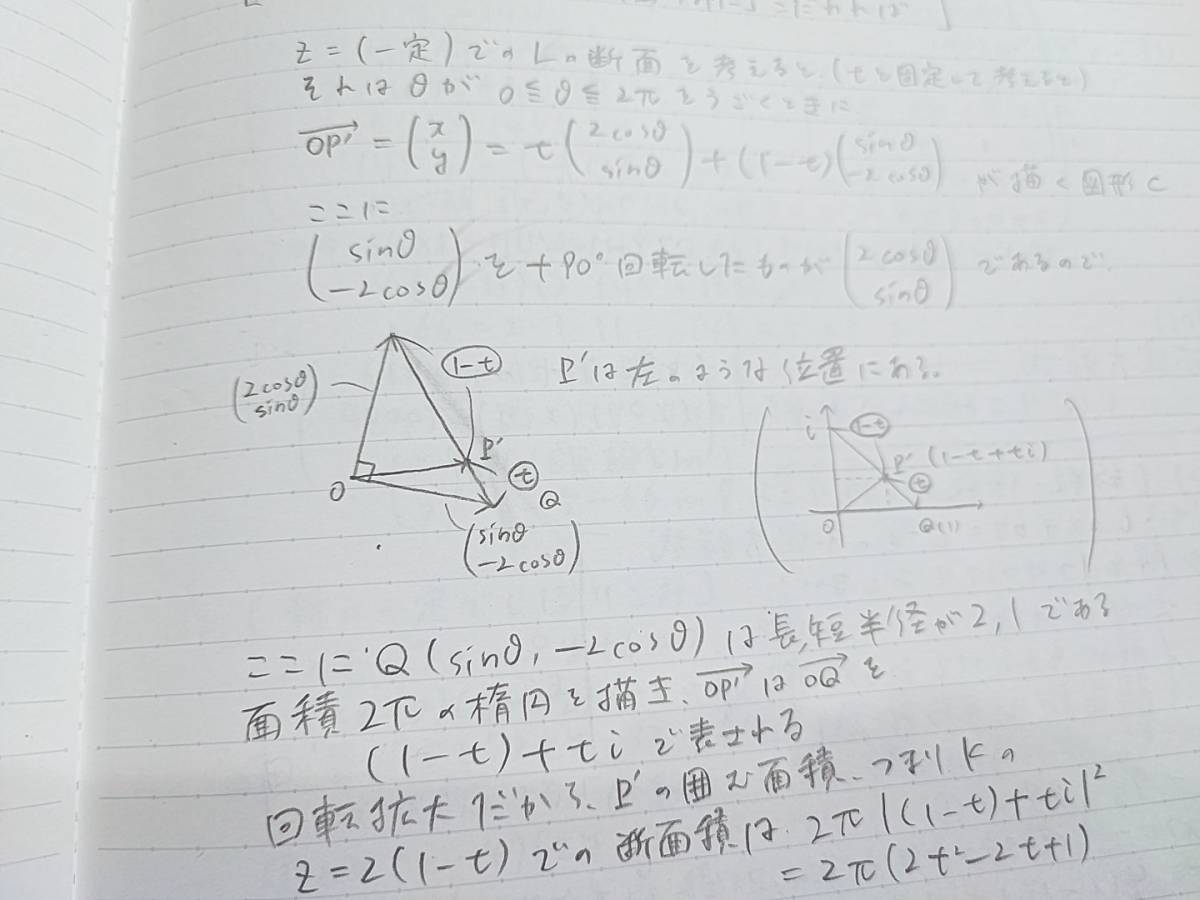 z = (一定) での Lの断面を考えると (tを固定して考えると)
それは θが 0≦θ≦2π をうごくときに
OP' = (x y) = t (2cosθ sinθ) + (1-t) (sinθ -2cosθ) が描く図形 C
ここに
(sinθ -2cosθ) を +90°回転したものが (2cosθ sinθ) であるので
(2cosθ sinθ)
1-t
P'は左のような位置にある.
P'
t
O
Q
(sinθ -2cosθ)
i
1-t
P' (1-t+ti)
t
O
Q(1)
ここに Q (sinθ, -2cosθ) は長,短半径が2, 1である
面積2πの楕円を描き、OP'は OQ を
(1-t)+ti で表される
回転拡大だから、P'の囲む面積、つまりKの
z=2(1-t) での断面積は 2π|(1-t)+ti|²
= 2π(2t²-2t+1)